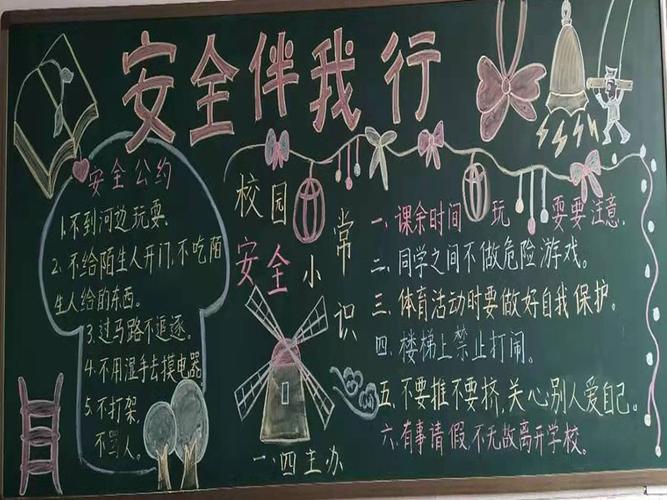 安全伴我行
安全公约
1.不到河边玩耍.
2.不给陌生人开门,不吃陌
生人给的东西.
3.过马路不追逐.
4.不用湿手去摸电器
5.不打架,
不骂人.
校园
安全小常识
一.四主办
一、课余时间 玩 耍要注意.
二、同学之间不做危险游戏。
三、体育活动时要做好自我保护.
四、楼梯上禁止打闹。
五、不要推不要挤,关心别人爱自己。
六、有事请假,不无故离开学校.